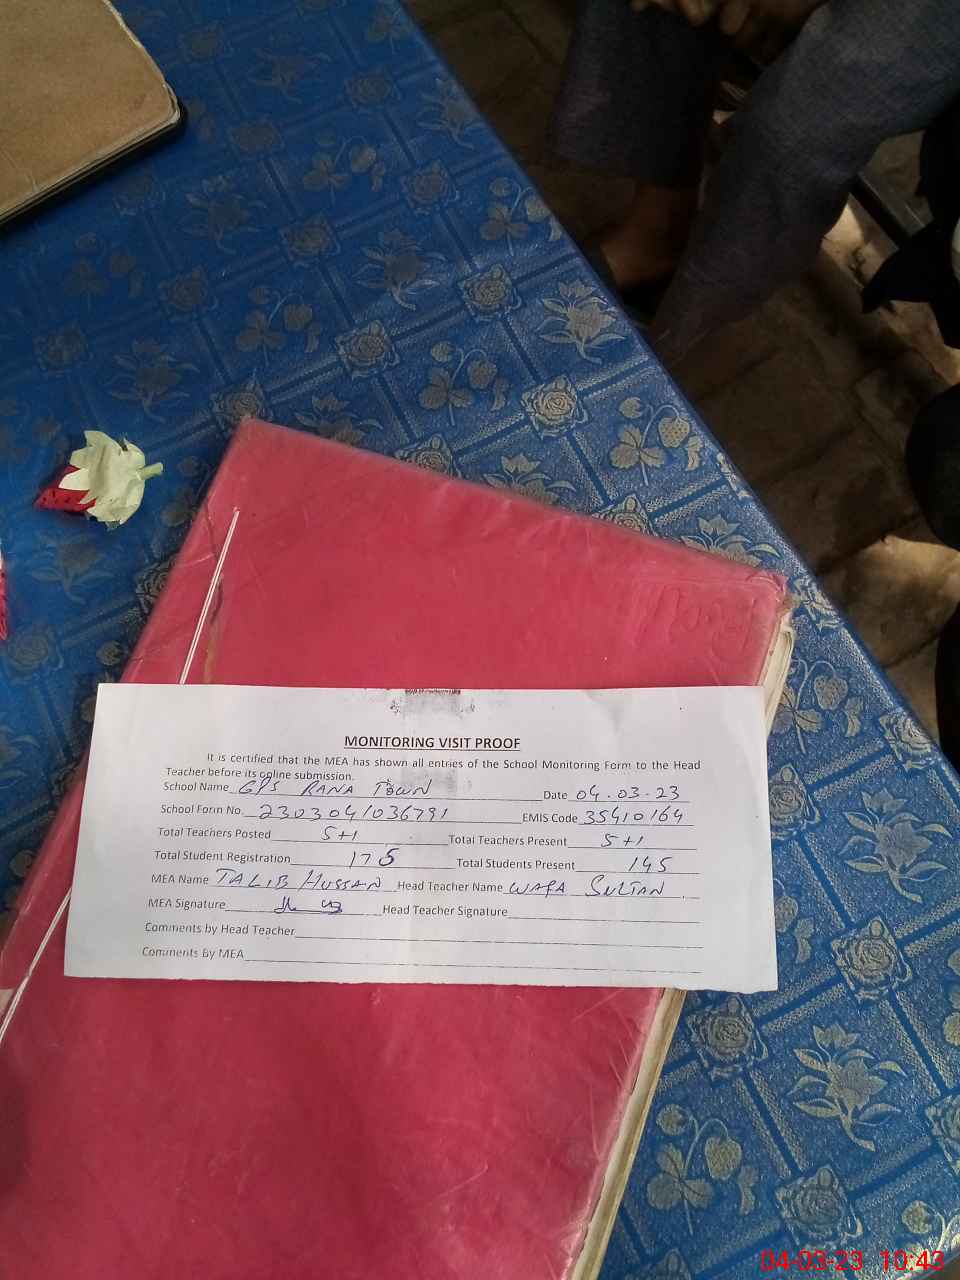 MONITORING VISIT PROOF
It is certified that the MEA has shown all entries of the School Monitoring Form to the Head
Teacher before its online submission.
School Name GPS RANA TOWN Date 04.03.23
School Form No. 2303041036791 EMIS Code 35410164
Total Teachers Posted 5+1 Total Teachers Present 5+1
Total Student Registration 175 Total Students Present 145
MEA Name TALIB HUSSAN Head Teacher Name WAFA SULTAN
MEA Signature Head Teacher Signature
Comments by Head Teacher
Comments By MEA
04-03-23 10:43